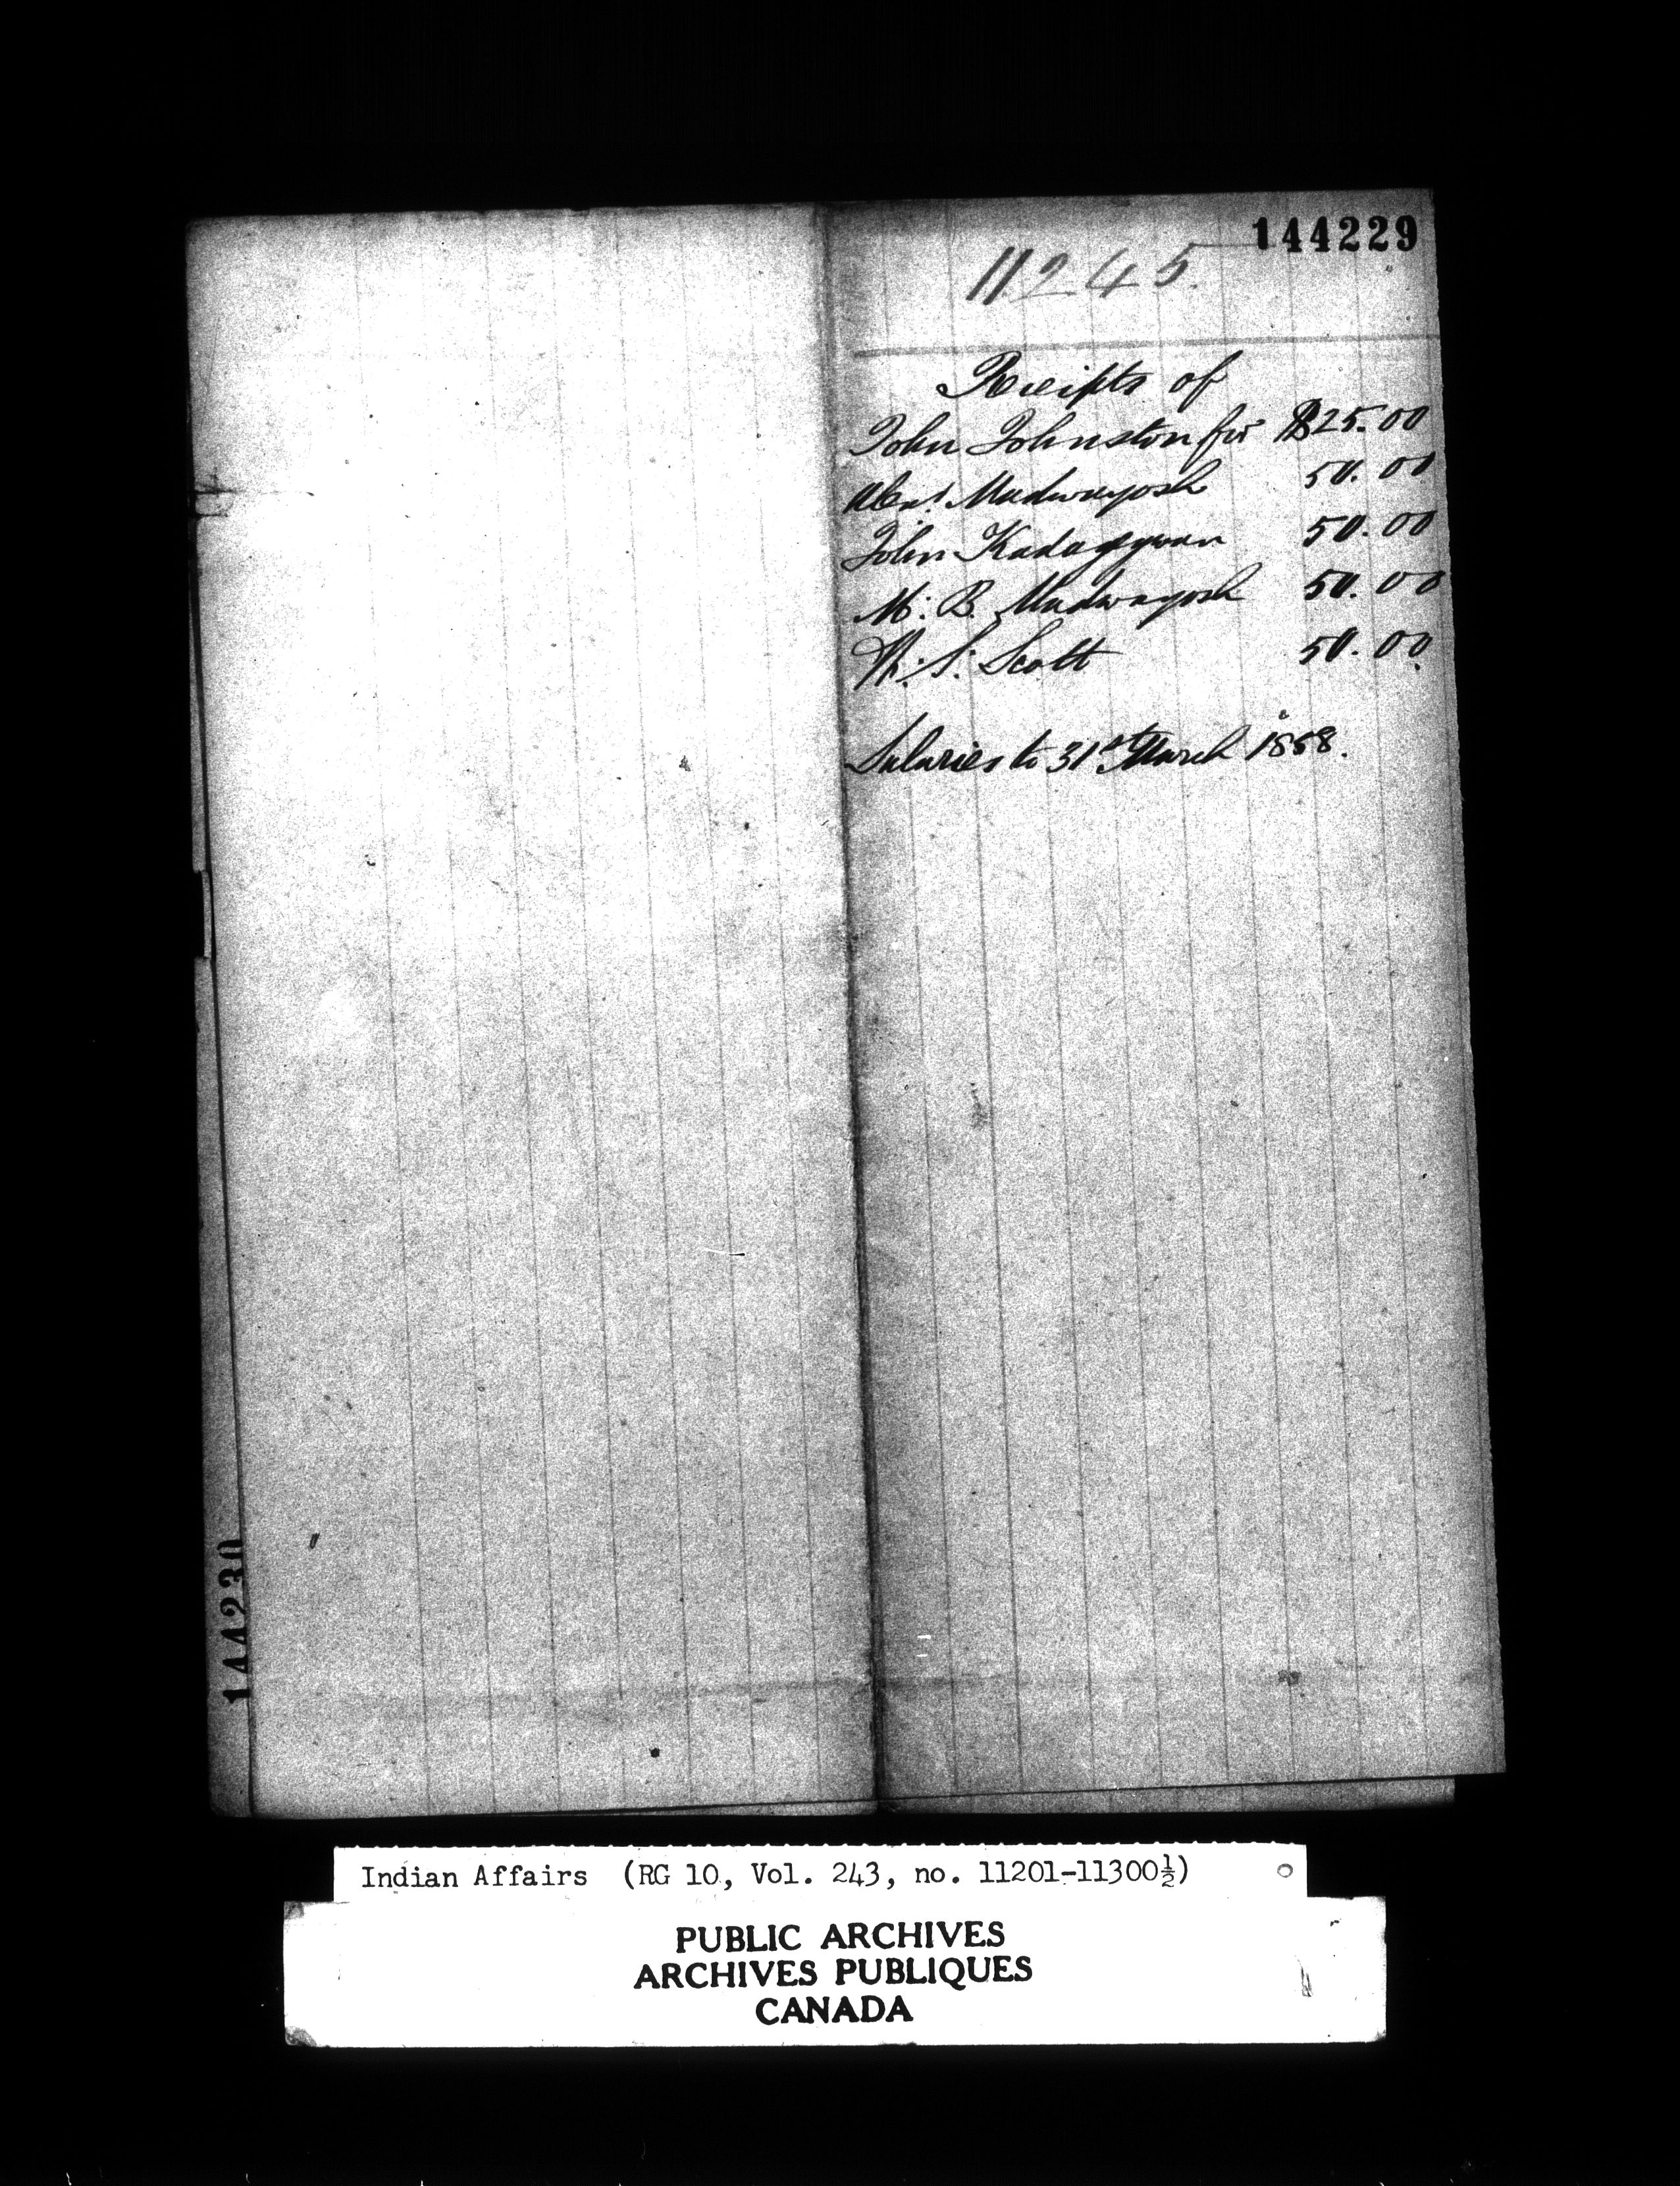 144229
11245.
Receipts of
John Johnston for $25.00
Alexr. Madwayosh 50.00
John Kadagegwan 50.00
M. B. Madwayosh 50.00
W. S. Scott 50.00
Salaries to 31st March 1888.
144230
Indian Affairs (RG 10, Vol. 243, no. 11201-11300½)
PUBLIC ARCHIVES
ARCHIVES PUBLIQUES
CANADA